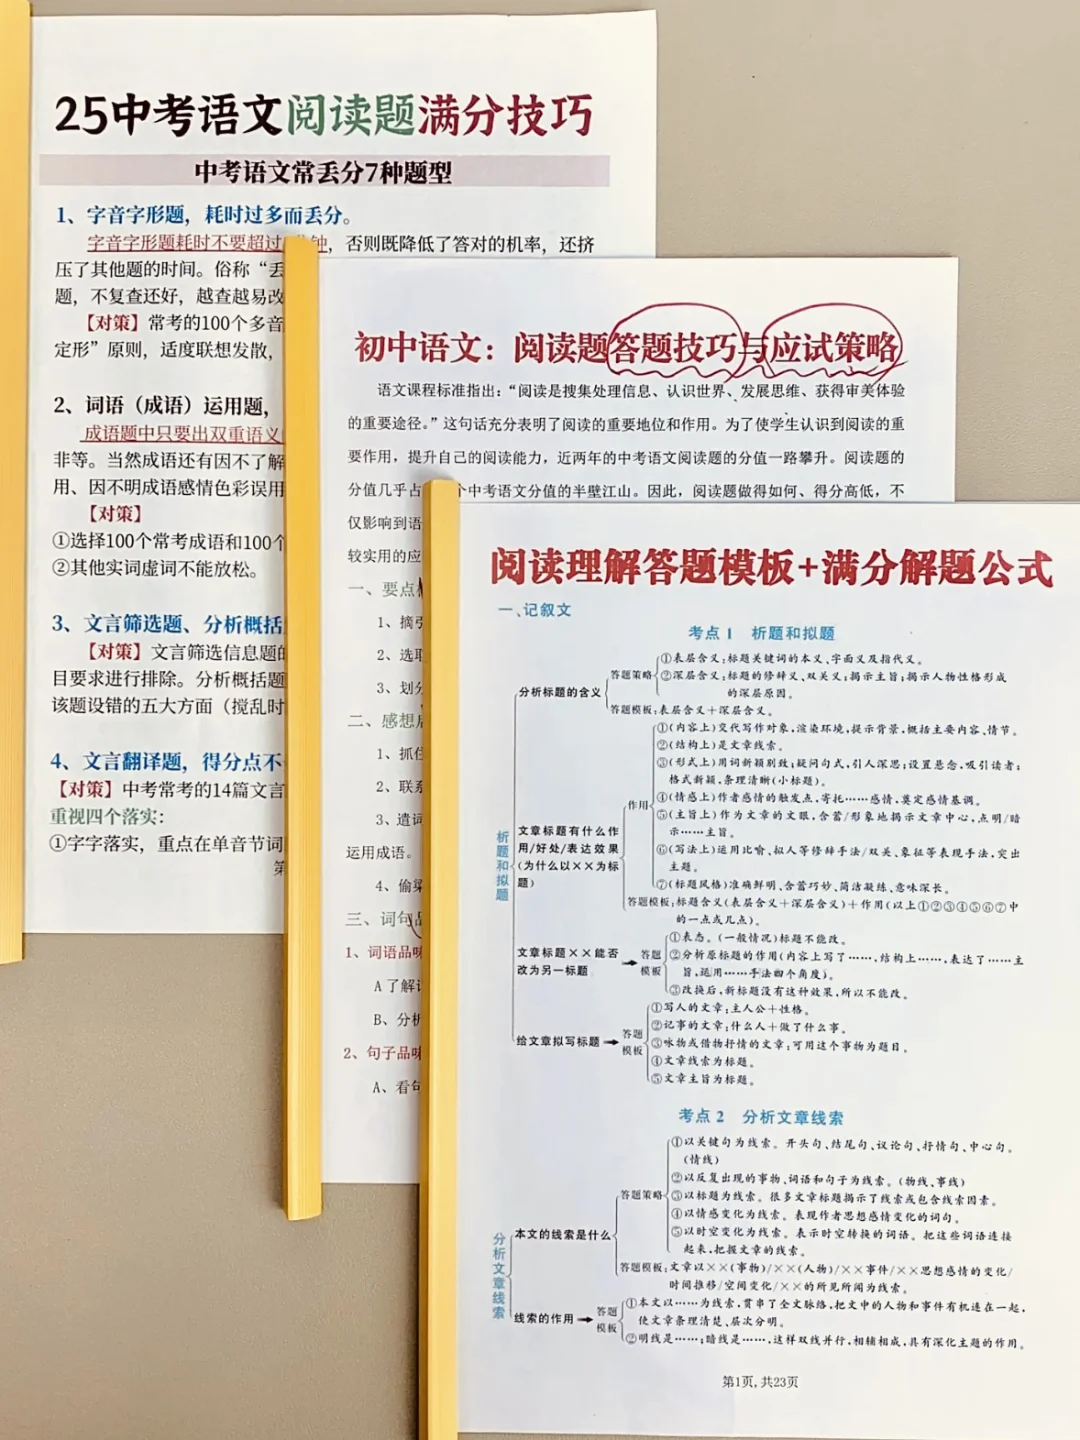 25中考语文阅读题满分技巧
中考语文常丢分7种题型
1、字音字形题，耗时过多而丢分。
字音字形题耗时不要超过
钟，否则既降低了答对的机率，还挤
压了其他题的时间。俗称“丢
题，不复查还好，越查越易改
【对策】常考的100个多音
定形”原则，适度联想发散，
2、词语（成语）运用题，
成语题中只要出双重语义
非等。当然成语还有因不了解
用、因不明成语感情色彩误用
【对策】
①选择100个常考成语和100个
②其他实词虚词不能放松。
3、文言筛选题、分析概括
【对策】文言筛选信息题的
目要求进行排除。分析概括题
该题设错的五大方面（搅乱时
4、文言翻译题，得分点不
【对策】中考常考的14篇文言
重视四个落实：
①字字落实，重点在单音节词
第
初中语文：阅读题答题技巧与应试策略
语文课程标准指出：“阅读是搜集处理信息、认识世界、发展思维、获得审美体验
的重要途径。”这句话充分表明了阅读的重要地位和作用。为了使学生认识到阅读的重
要作用，提升自己的阅读能力，近两年的中考语文阅读题的分值一路攀升。阅读题的
分值几乎占
个中考语文分值的半壁江山。因此，阅读题做得如何、得分高低，不
仅影响到语
较实用的应
一、要点
1、摘引
2、选取
3、划分
二、感想
1、抓住
2、联系
3、遣词
运用成语。
4、偷梁
三、词句品
1、词语品味
A 了解
B、分析
2、句子品味
A、看句
阅读理解答题模板+满分解题公式
一、记叙文
考点 1 析题和拟题
析题和拟题
分析标题的含义
答题策略
①表层含义:标题关键词的本义、字面义及指代义。
②深层含义:标题的修辞义、双关义;揭示主旨;揭示人物性格形成
的深层原因。
答题模板:表层含义+深层含义。
文章标题有什么作
用/好处/表达效果
(为什么以××为标
题)
作用
①(内容上)交代写作对象,渲染环境,提示背景,概括主要内容、情节。
②(结构上)是文章线索。
③(形式上)用词新颖别致;疑问句式,引人深思;设置悬念,吸引读者;
格式新颖,条理清晰(小标题)。
④(情感上)作者感情的触发点,寄托……感情,奠定感情基调。
⑤(主旨上)作为文章的文眼,含蓄/形象地揭示文章中心,点明/暗
示……主旨。
⑥(写法上)运用比喻、拟人等修辞手法/双关、象征等表现手法,突出
主题。
⑦(标题风格)准确鲜明、含蓄巧妙、简洁凝练、意味深长。
答题模板:标题含义(表层含义+深层含义)+作用(以上①②③④⑤⑥⑦中
的一点或几点)。
文章标题××能否
改为另一标题
答题
模板
①表态。(一般情况)标题不能改。
②分析原标题的作用(内容上写了……,结构上……,表达了……主
旨,运用……手法四个角度)。
③改换后,新标题没有这种效果,所以不能改。
给文章拟写标题
答题
模板
①写人的文章:主人公+性格。
②记事的文章:什么人+做了什么事。
③咏物或借物抒情的文章:可用这个事物为题目。
④文章线索为标题。
⑤文章主旨为标题。
考点 2 分析文章线索
分析文章线索
本文的线索是什么
答题策略
①以关键句为线索。开头句、结尾句、议论句、抒情句、中心句。
(情线)
②以反复出现的事物、词语和句子为线索。(物线、事线)
③以标题为线索。很多文章标题揭示了线索或包含线索因素。
④以情感变化为线索。表现作者思想感情变化的词句。
⑤以时空变化为线索。表示时空转换的词语。把这些词语连接
起来,把握文章的线索。
答题模板:文章以××(事物)/××(人物)/××事件/××思想感情的变化/
时间推移/空间变化/××的所见所闻为线索。
线索的作用
答题
模板
①本文以……为线索,贯串了全文脉络,把文中的人物和事件有机连在一起,
使文章条理清楚、层次分明。
②明线是……;暗线是……,这样双线并行,相辅相成,具有深化主题的作用。
第1页,共23页